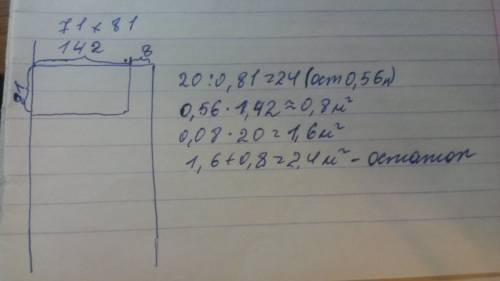 71 x 81
142 8
21
20:0,81=24 (ост 0,56м)
0,56·1,42≈0,8м²
0,08·20=1,6м²
1,6+0,8=2,4м² - остаток